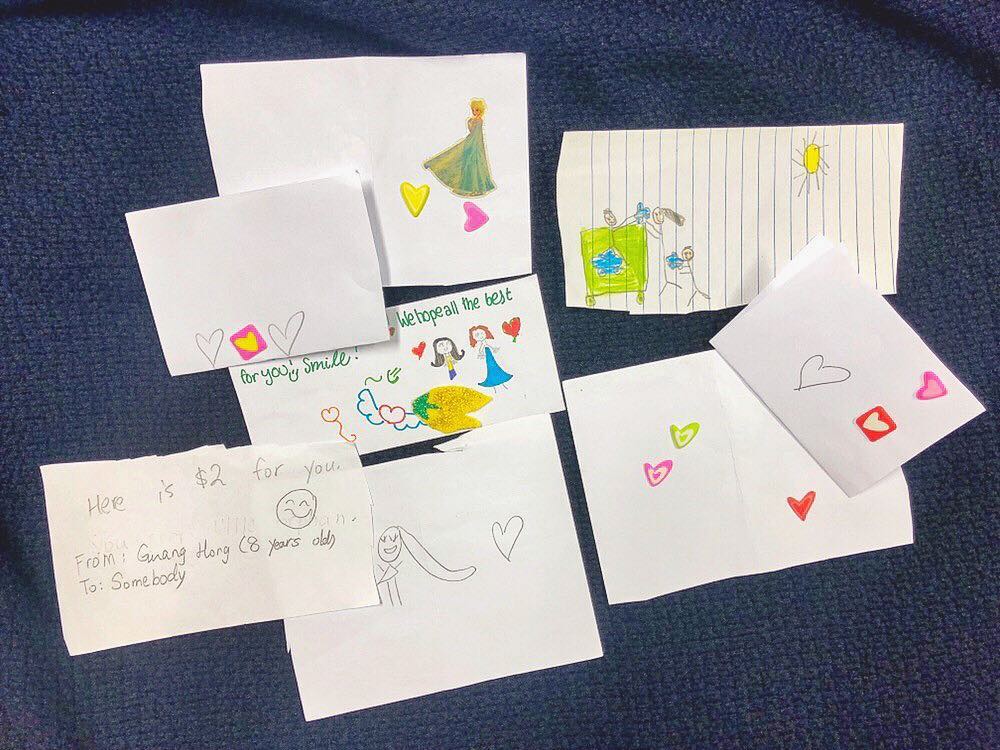 We hope all the best
for you! Smile!
Here is $2 for you.
From: Guang Hong (8 years old)
To: Somebody